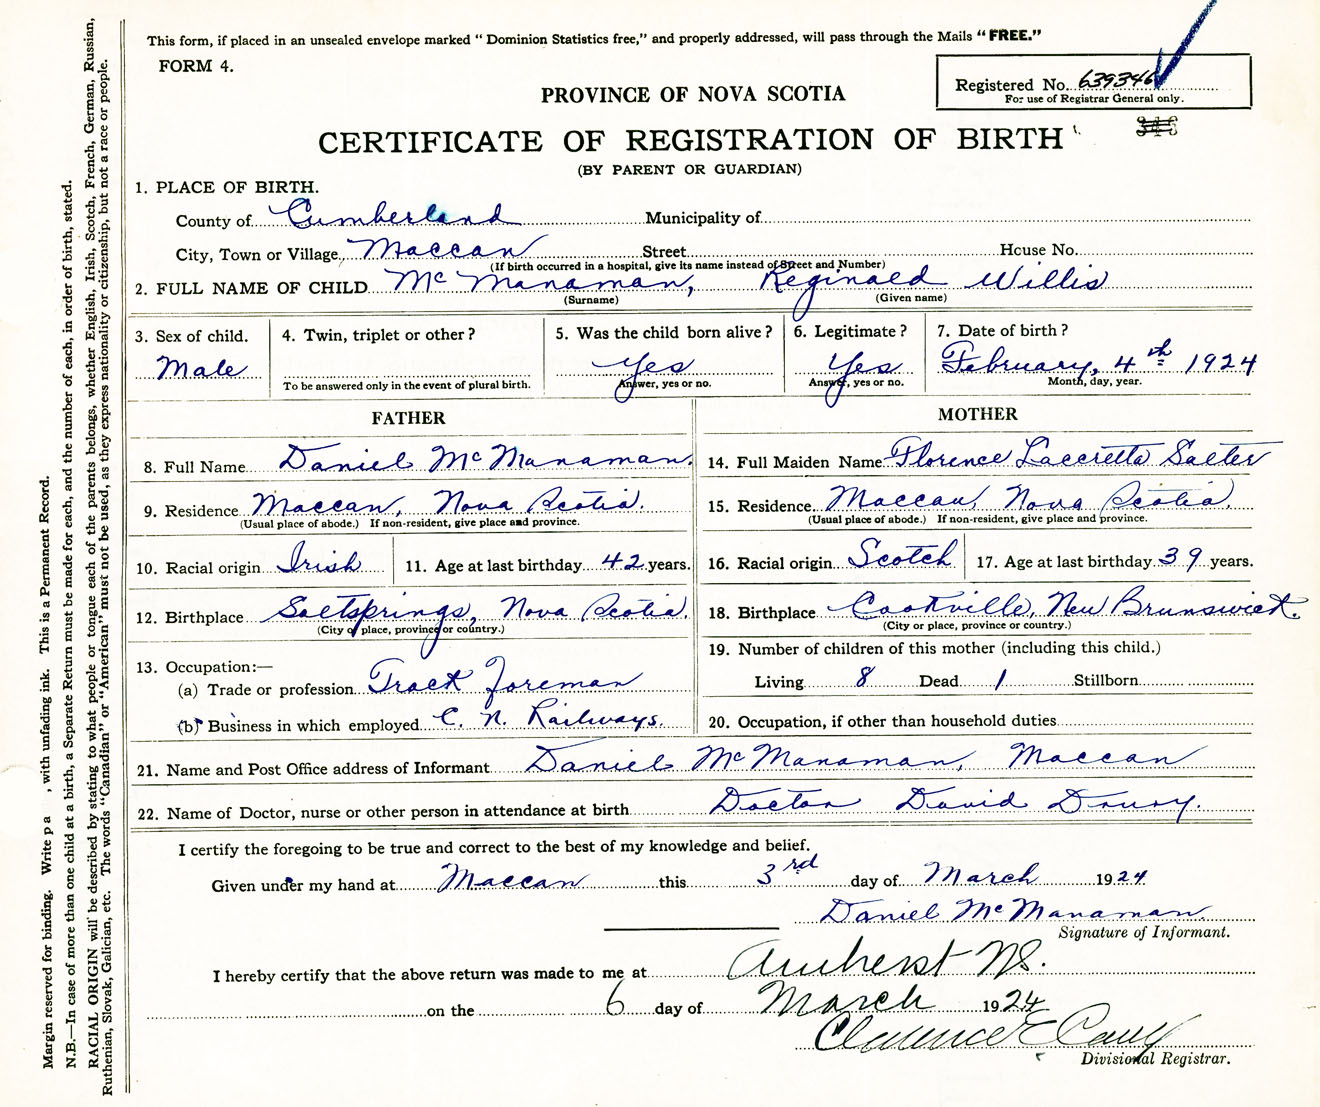 This form, if placed in an unsealed envelope marked "Dominion Statistics free," and properly addressed, will pass through the Mails "FREE."
FORM 4.
Registered No. 639346
For use of Registrar General only.
PROVINCE OF NOVA SCOTIA
CERTIFICATE OF REGISTRATION OF BIRTH
(BY PARENT OR GUARDIAN)
1. PLACE OF BIRTH.
County of Cumberland Municipality of
City, Town or Village Maccan Street House No.
(If birth occurred in a hospital, give its name instead of Street and Number)
2. FULL NAME OF CHILD McManaman, Reginald Willis
(Surname) (Given name)
3. Sex of child. 4. Twin, triplet or other? 5. Was the child born alive? 6. Legitimate? 7. Date of birth?
Male Yes Yes February, 4th 1924
To be answered only in the event of plural birth. Answer, yes or no. Answer, yes or no. Month, day, year.
FATHER
8. Full Name Daniel McManaman.
9. Residence Maccan, Nova Scotia.
(Usual place of abode.) If non-resident, give place and province.
10. Racial origin Irish 11. Age at last birthday 42 years.
12. Birthplace Saltsprings, Nova Scotia.
(City or place, province or country.)
13. Occupation:—
(a) Trade or profession Track Foreman
(b) Business in which employed C. N. Railways.
MOTHER
14. Full Maiden Name Florence Salter
15. Residence Maccan, Nova Scotia.
(Usual place of abode.) If non-resident, give place and province.
16. Racial origin Scotch 17. Age at last birthday 39 years.
18. Birthplace Cookville, New Brunswick.
(City or place, province or country.)
19. Number of children of this mother (including this child.)
Living 8 Dead 1 Stillborn
20. Occupation, if other than household duties
21. Name and Post Office address of Informant Daniel McManaman, Maccan
22. Name of Doctor, nurse or other person in attendance at birth Doctor David Drury.
I certify the foregoing to be true and correct to the best of my knowledge and belief.
Given under my hand at Maccan this 3rd day of March 1924
Daniel McManaman
Signature of Informant.
I hereby certify that the above return was made to me at Amherst NS.
on the 6 day of March 1924
Clarence E
Divisional Registrar.
Margin reserved for binding. Write , with unfading ink. This is a Permanent Record.
N.B.—In case of more than one child at a birth, a Separate Return must be made for each, and the number of each, in order of birth, stated.
RACIAL ORIGIN will be described by stating to what people or tongue each of the parents belongs, whether English, Irish, Scotch, French, German, Russian,
Ruthenian, Slovak, Galician, etc. The words "Canadian" or "American" must not be used, as they express nationality or citizenship, but not a race or people.